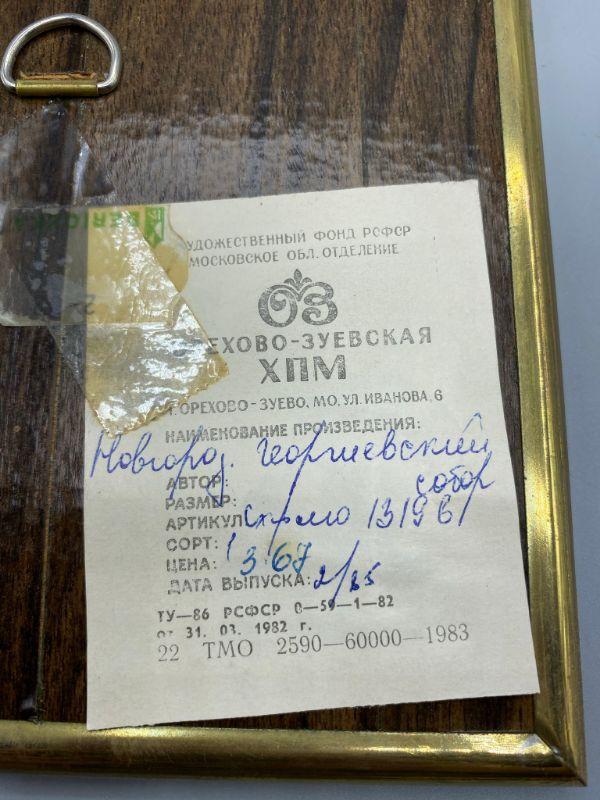 BERIOZKA
УДОЖЕСТВЕННЫЙ ФОНД РСФСР
МОСКОВСКОЕ ОБЛ. ОТДЕЛЕНИЕ
ОЗ
РЕХОВО-ЗУЕВСКАЯ
ХПМ
Г. ОРЕХОВО-ЗУЕВО, МО, УЛ. ИВАНОВА, 6
НАИМЕНОВАНИЕ ПРОИЗВЕДЕНИЯ:
Новгород. Георгиевский
собор
АВТОР:
РАЗМЕР:
АРТИКУЛ 13196
СОРТ: 1
ЦЕНА: 3 67
ДАТА ВЫПУСКА: 2/85
ТУ—86 РСФСР 0—59—1—82
от 31. 03. 1982 г.
22 ТМО 2590—60000—1983